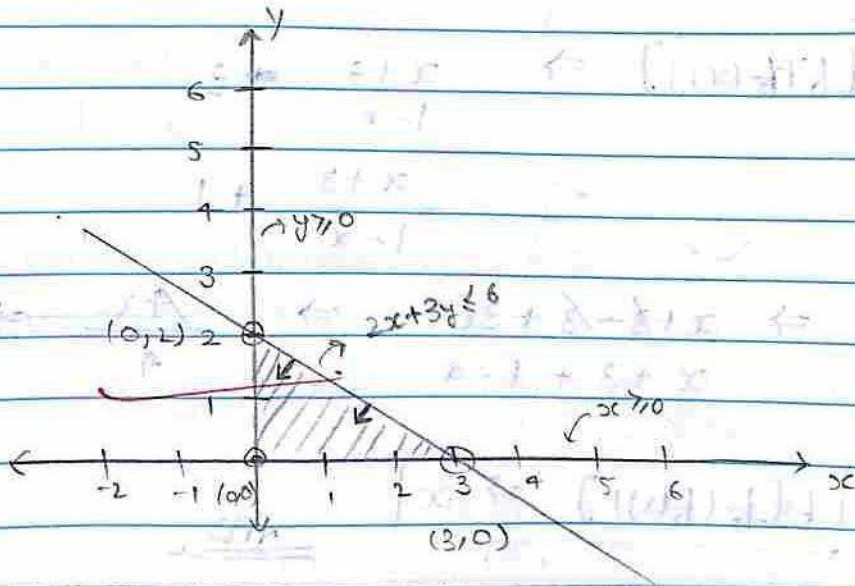 y
6
5
4
y ≥ 0
3
2x + 3y ≤ 6
(0,2) 2
1
x ≥ 0
-2 -1 (0,0) 1 2 3 4 5 6 x
(3,0)